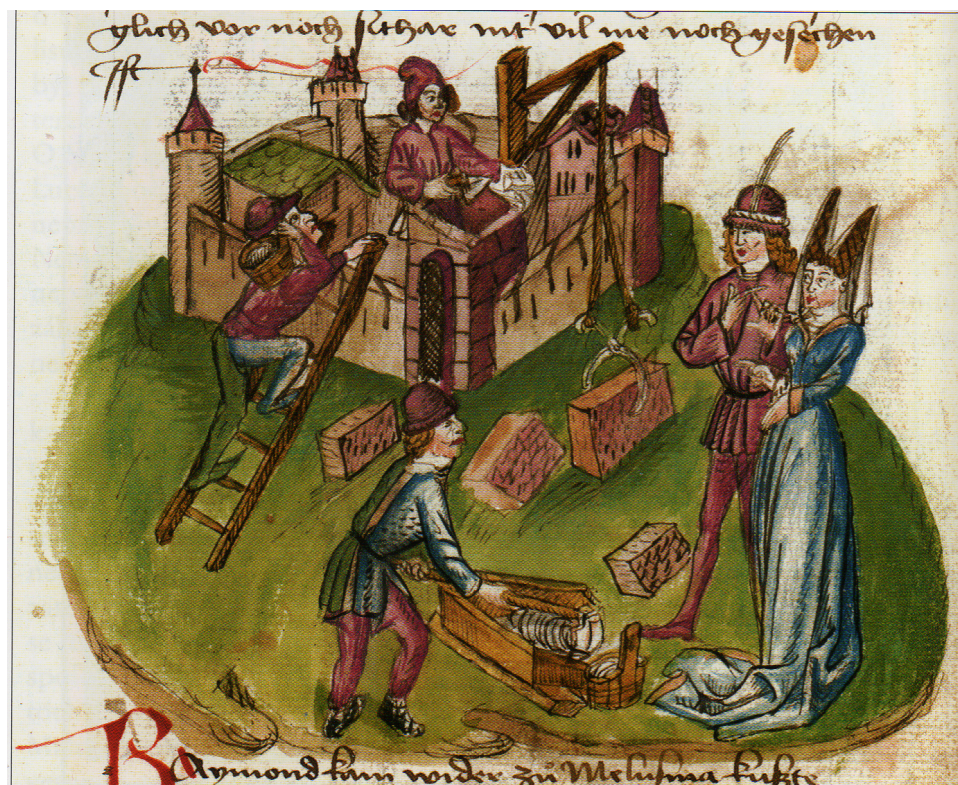 glich vor noch sithar nit vil me noch gesechen
ist
Raymond kam wider zů Melusina kuszte